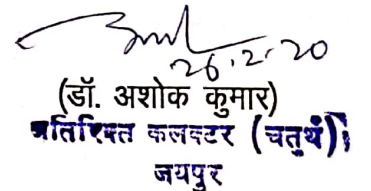 26.2.20
(डॉ. अशोक कुमार)
अतिरिक्त कलक्टर (चतुर्थ)
जयपुर